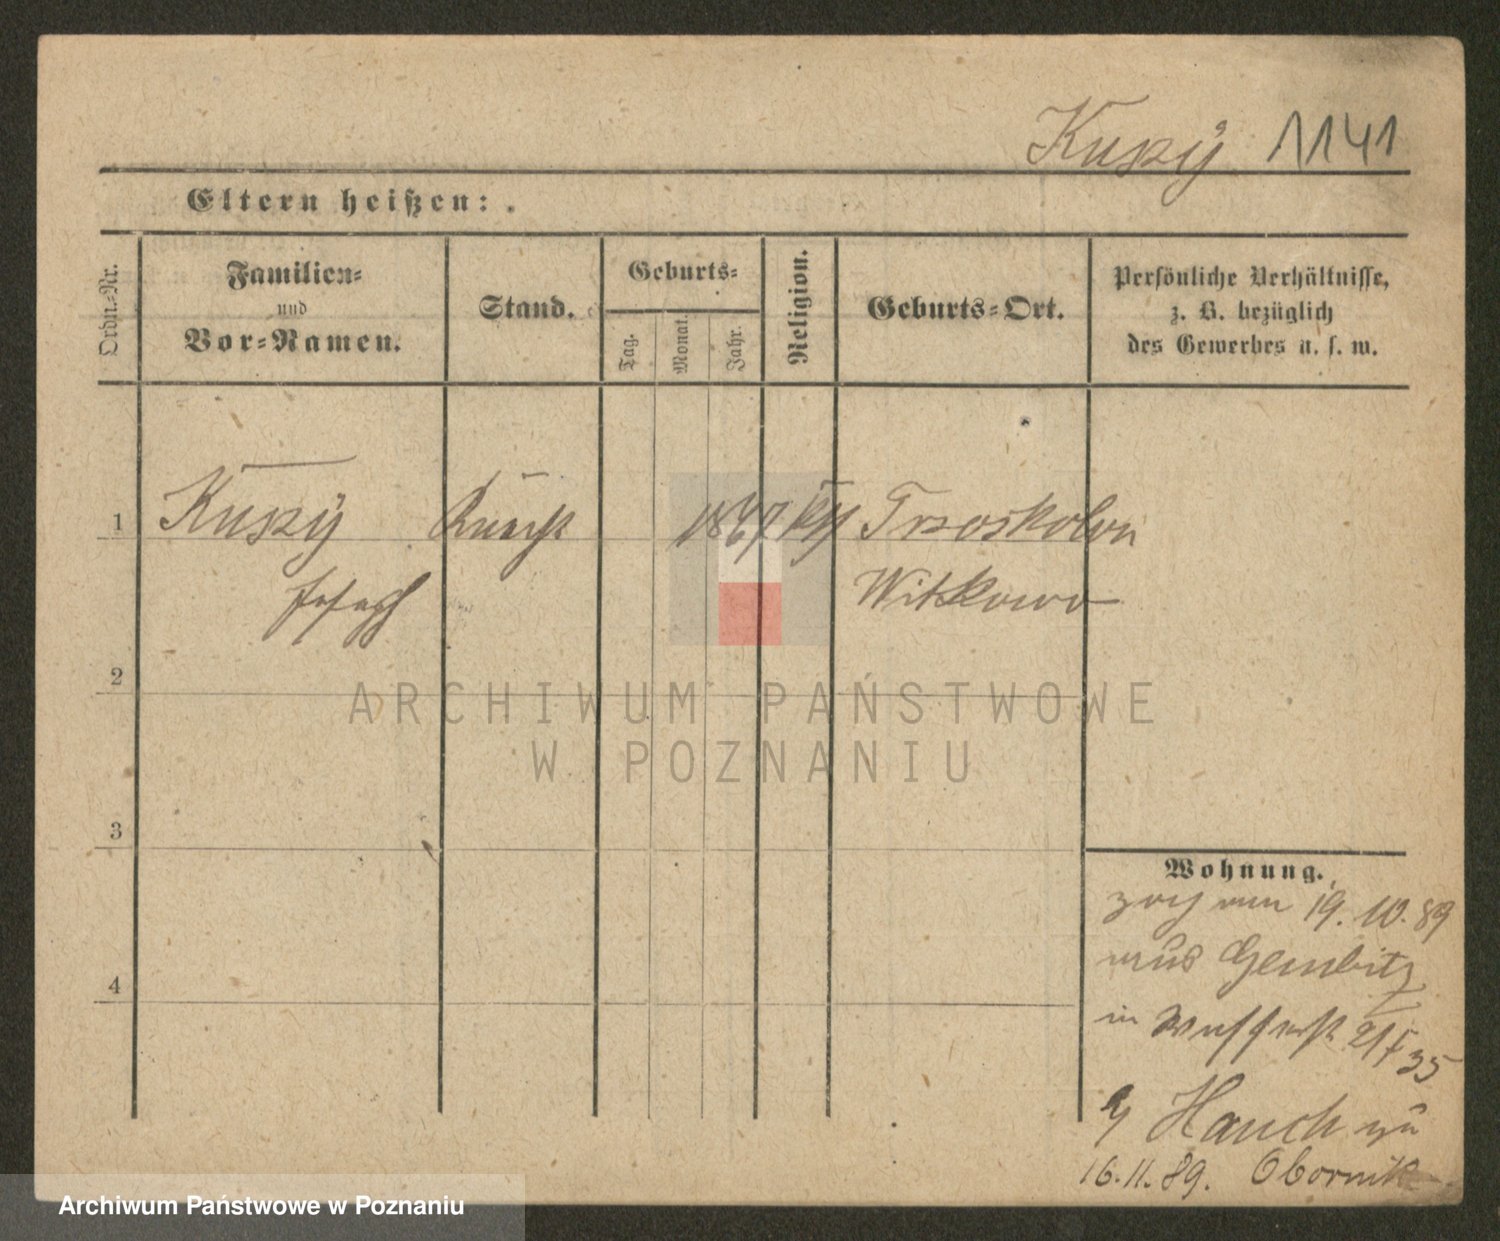 Kuszÿ 1141
Eltern heißen:
Ordn.-Nr.
Familien-
und
Vor-Namen.
Stand.
Geburts-
Tag.
Monat.
Jahr.
Religion.
Geburts-Ort.
Persönliche Verhältnisse,
z. B. bezüglich
des Gewerbes u. s. w.
1 Kuszÿ Knecht 1867 kth Trzoskolon
Joseph Witkowo
2
3
4
Wohnung.
zog am 19.10.89
aus Gembitz
in 21/35
Hauch
16.11.89. Obornik
ARCHIWUM PAŃSTWOWE
W POZNANIU
Archiwum Państwowe w Poznaniu